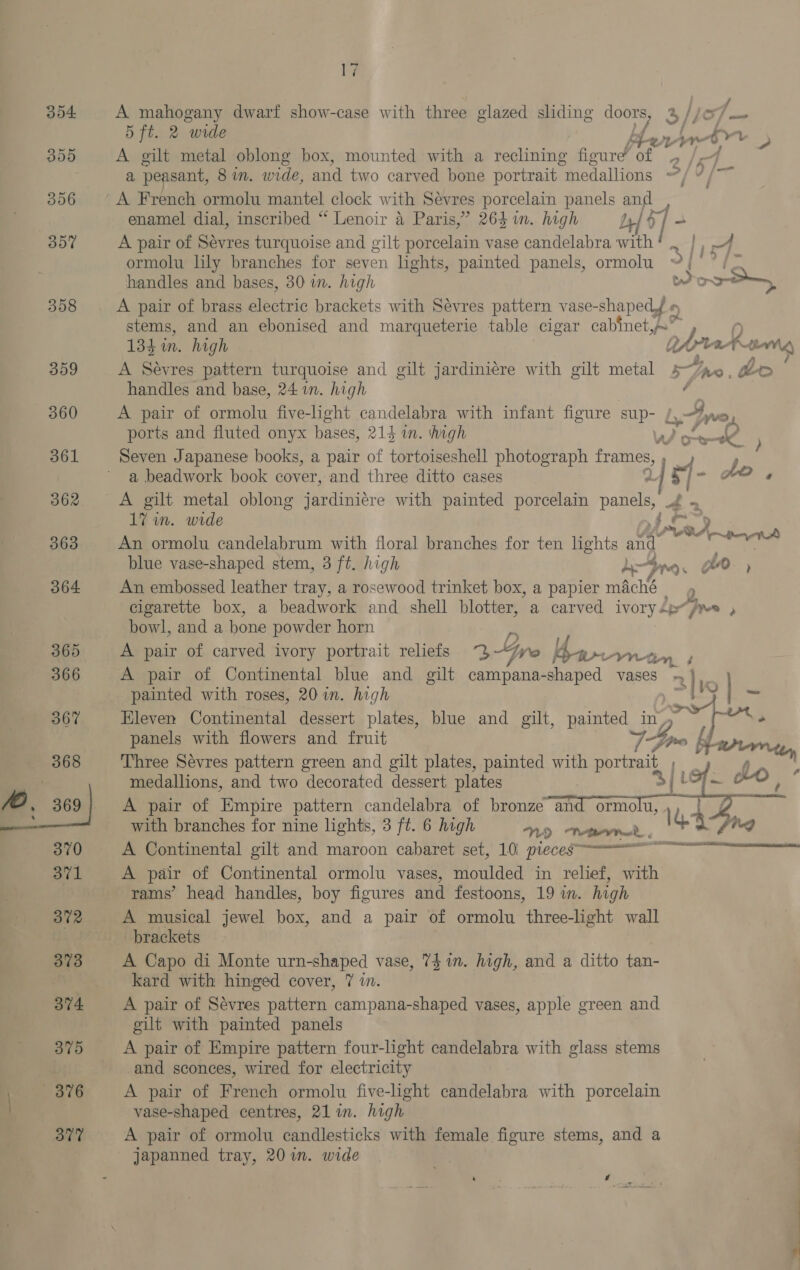 17
354 A mahogany dwarf show-case with three glazed sliding doors,
5 ft. 2 wide
355 A gilt metal oblong box, mounted with a reclining figure of
a peasant, 8 in. wide, and two carved bone portrait medallions
356 A French ormolu mantel clock with Sèvres porcelain panels and
enamel dial, inscribed “ Lenoir à Paris,” 26½ in. high
357 A pair of Sèvres turquoise and gilt porcelain vase candelabra with
ormolu lily branches for seven lights, painted panels, ormolu
handles and bases, 30 in. high
358 A pair of brass electric brackets with Sèvres pattern vase-shaped
stems, and an ebonised and marqueterie table cigar cabinet,
13½ in. high
359 A Sèvres pattern turquoise and gilt jardinière with gilt metal
handles and base, 24 in. high do
360 A pair of ormolu five-light candelabra with infant figure sup-
ports and fluted onyx bases, 21½ in. high
361 Seven Japanese books, a pair of tortoiseshell photograph frames,
a beadwork book cover, and three ditto cases do
362 A gilt metal oblong jardinière with painted porcelain panels,
17 in. wide
363 An ormolu candelabrum with floral branches for ten lights and
blue vase-shaped stem, 3 ft. high do
364 An embossed leather tray, a rosewood trinket box, a papier mâché
cigarette box, a beadwork and shell blotter, a carved ivory
bowl, and a bone powder horn
365 A pair of carved ivory portrait reliefs
366 A pair of Continental blue and gilt campana-shaped vases
painted with roses, 20 in. high
367 Eleven Continental dessert plates, blue and gilt, painted in
panels with flowers and fruit
368 Three Sèvres pattern green and gilt plates, painted with portrait
medallions, and two decorated dessert plates do
369 A pair of Empire pattern candelabra of bronze and ormolu,
with branches for nine lights, 3 ft. 6 high
370 A Continental gilt and maroon cabaret set, 10 pieces
371 A pair of Continental ormolu vases, moulded in relief, with
rams’ head handles, boy figures and festoons, 19 in. high
372 A musical jewel box, and a pair of ormolu three-light wall
brackets
373 A Capo di Monte urn-shaped vase, 7½ in. high, and a ditto tan-
kard with hinged cover, 7 in.
374 A pair of Sèvres pattern campana-shaped vases, apple green and
gilt with painted panels
375 A pair of Empire pattern four-light candelabra with glass stems
and sconces, wired for electricity
376 A pair of French ormolu five-light candelabra with porcelain
vase-shaped centres, 21 in. high
377 A pair of ormolu candlesticks with female figure stems, and a
japanned tray, 20 in. wide